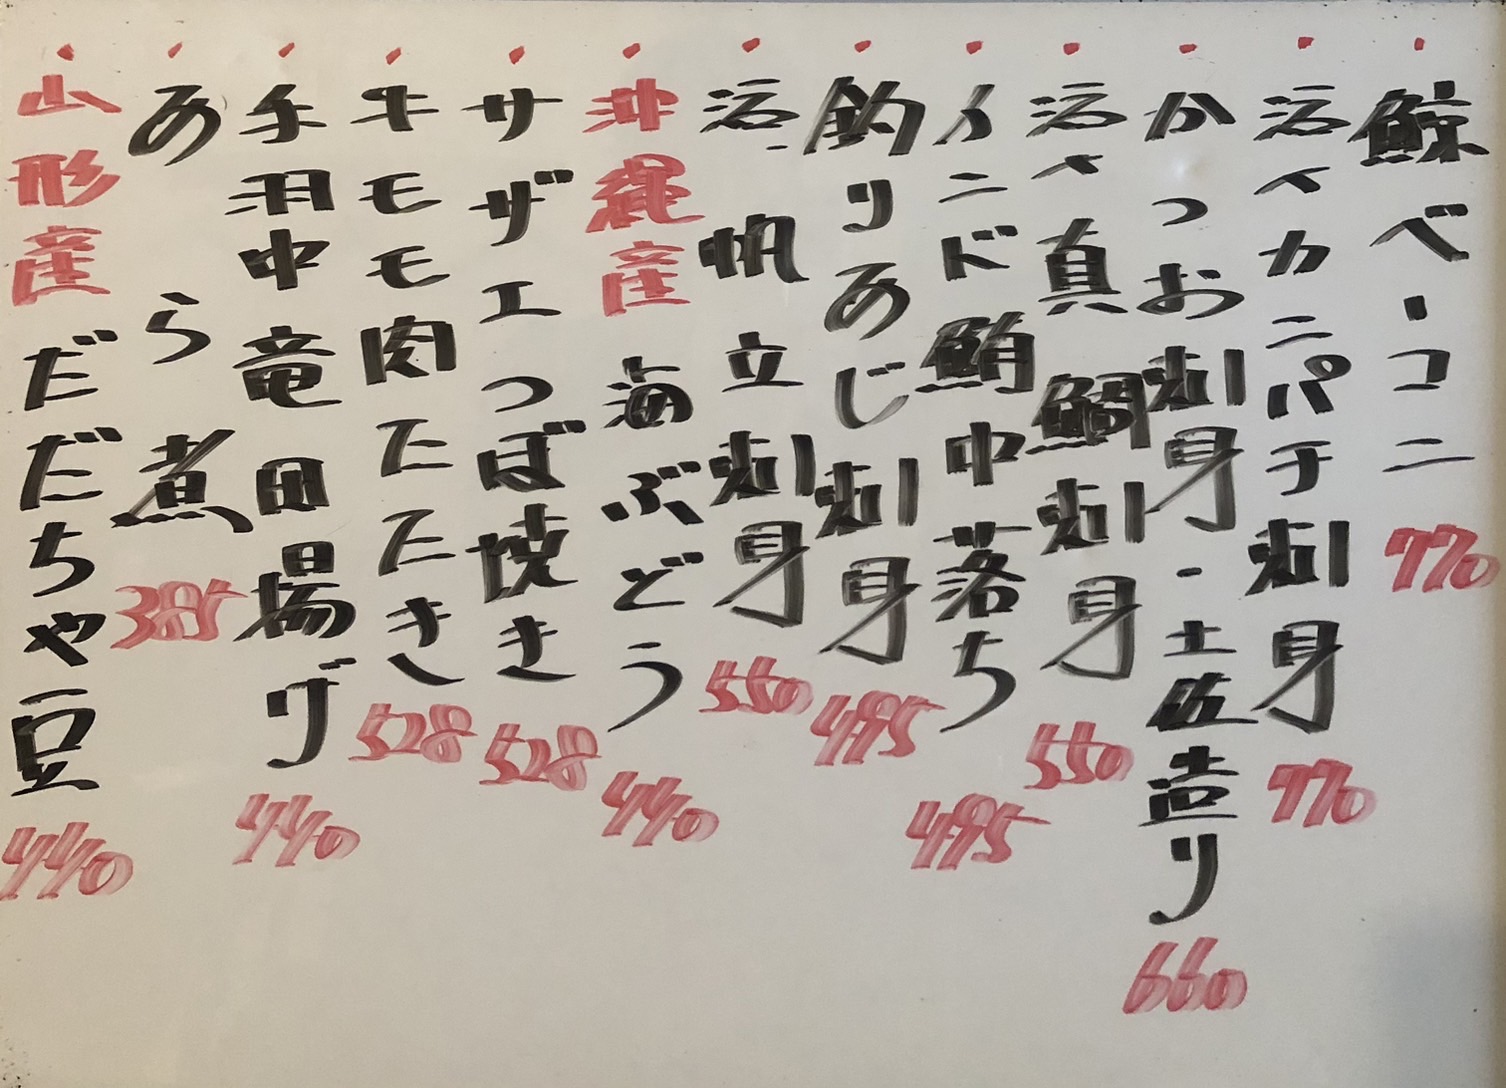 ・鯨ベーコン 770
・活〆カンパチ刺身 770
・かつお刺身・土佐造り 660
・活〆真鯛刺身 550
・インド鮪中落ち 495
・釣りあじ刺身 495
・活帆立刺身 550
・沖縄産海ぶどう 440
・サザエつぼ焼き 528
・牛モモ肉たたき 528
・手羽中竜田揚げ 440
・あら煮 385
・山形産だだちゃ豆 440